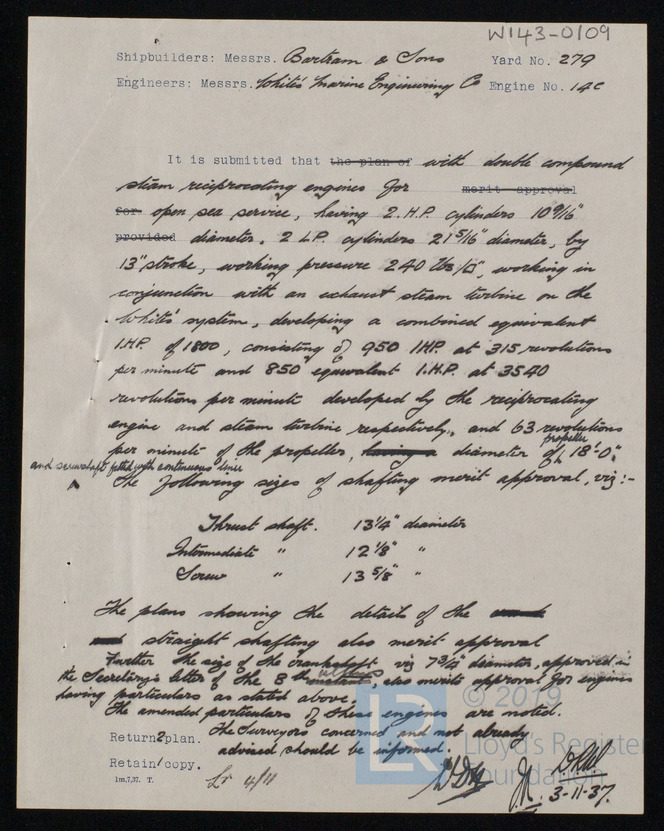 W143-0109
Shipbuilders: Messrs. Bartram & Sons Yard No. 279
Engineers: Messrs. White's Marine Engineering Co Engine No. 14c
It is submitted that the plan of with double compound
steam reciprocating engines for merit approval
for open sea service, having 2. H.P. cylinders 10 9/16"
provided diameter, 2 L.P. cylinders 21 5/16" diameter, by
13" stroke, working pressure 240 lbs/□", working in
conjunction with an exhaust steam turbine on the
White's system, developing a combined equivalent
I.H.P. of 1800, consisting of 950 IHP. at 315 revolutions
per minute and 850 equivalent I.H.P. at 3540
revolutions per minute developed by the reciprocating
engine and steam turbine respectively, and 63 revolutions
per minute of the propeller, having a diameter of propeller 18'-0".
and screwshaft fitted with continuous liner
The following sizes of shafting merit approval, viz:-
Thrust shaft. 13 1/4" diameter
Intermediate " 12 1/8" "
Screw " 13 5/8" "
The plans showing the details of the
straight shafting also merit approval
Further the size of the crankshaft viz 7 3/4" diameter, approved in
the Secretary's letter of the 8th, also merits approval for engines
having particulars as stated above.
The amended particulars of these engines are noted.
Return 2 plan. The Surveyors concerned and not already
advised should be informed.
Retain 1 copy.
1m.7,37. T.
Lr 4/11
3-11-37.
© 2019
Lloyd's Register
Foundation
LR